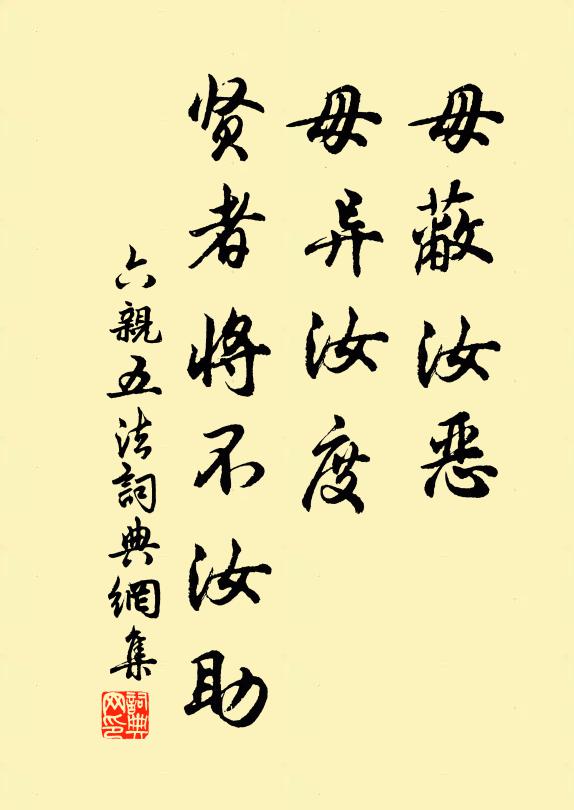 毋蔽汝恶
毋异汝度
贤者将不汝助
六親五法詞典網集
詞典网印